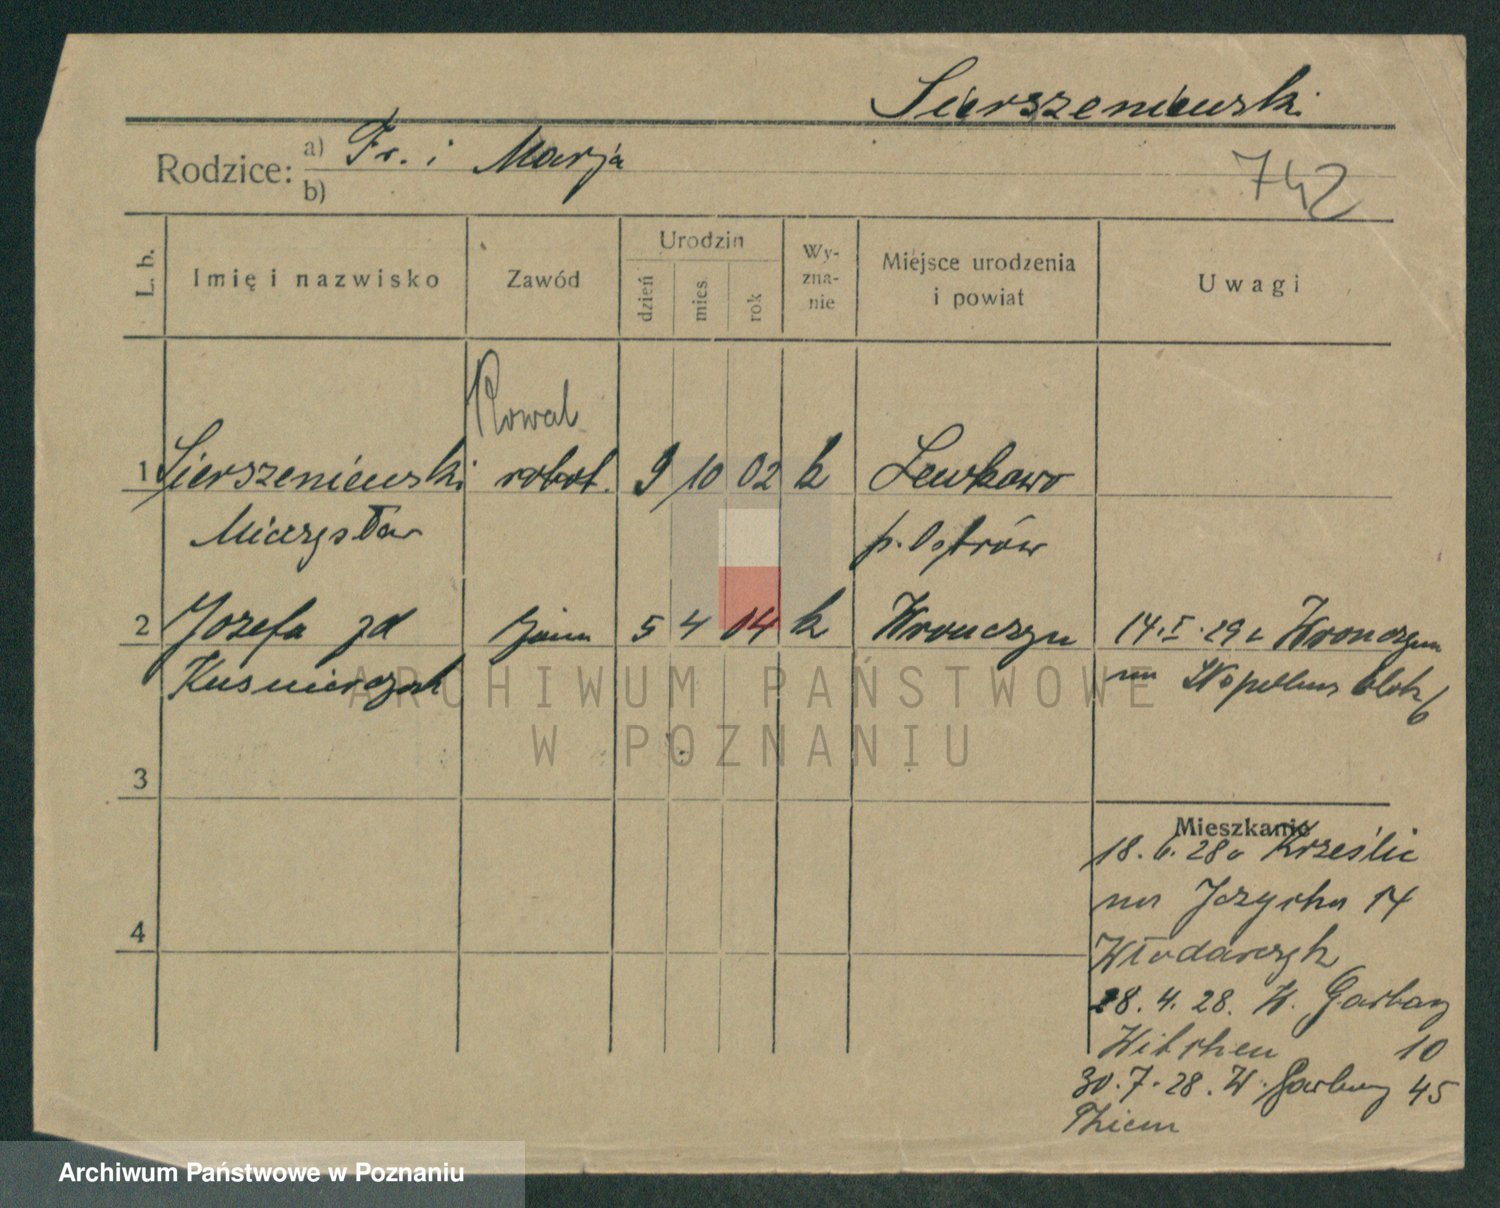 Sierszeniewski
Rodzice: a) Fr. i Marja
b)
742
L. b.
Imię i nazwisko
Zawód
Urodzin
dzień
mies.
rok
Wy-
zna-
nie
Miejsce urodzenia
i powiat
Uwagi
Kowal
1 Sierszeniewski robot. 9 10 02 k Lewkowo
Mieczysław p. Ostrów
2 Józefa zd 5 4 04 k Wronczyn 14.I.29 z Wronczyna
Kuśnierczak na blok 6
3
4
Mieszkanie
18.6.28 z
na Jeżycka 14
Włodarczyk
28.4.28. W. Garbary
10
30.7.28. W. Garbary 45
Thiem
ARCHIWUM PAŃSTWOWE
W POZNANIU
Archiwum Państwowe w Poznaniu